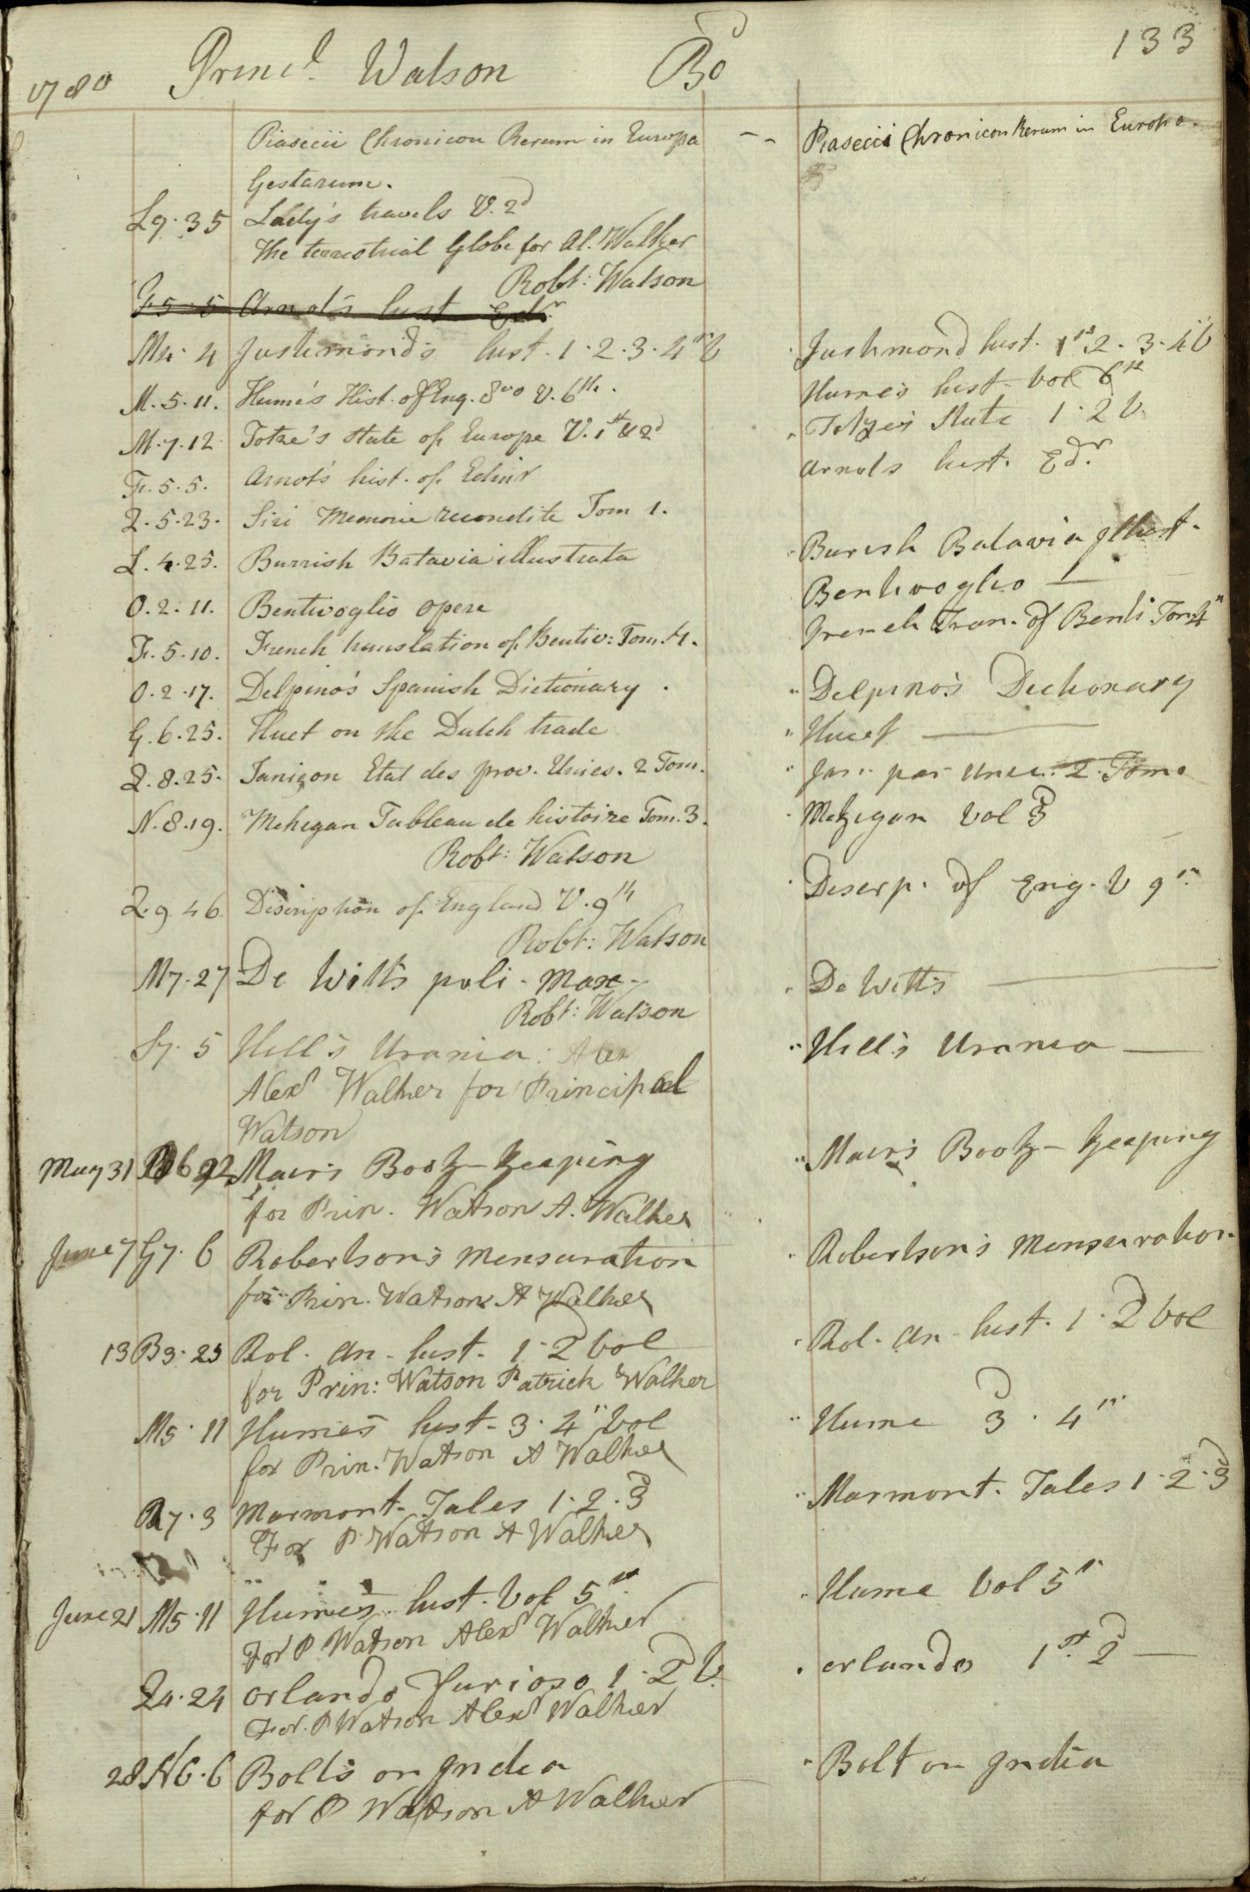 1780 Princl. Watson Bd 133
Piasecii Chronicon Rerum in Europa -- Piasecii Chronicon Rerum in Europa.
Gestarum.
L9.35 Lady's travels V. 2d
The terrestrial Globe for Al. Walker
Robt: Watson
F5.5 Arnot's hist Edr.
M4.4 Justimond's hist. 1.2.3.4th V Justimond hist. 1st 2.3.4th V
M.5.11. Hume's Hist. of Eng. 8vo V. 6th. Hume's hist. vol 6th
M.7.12 Totze's state of Europe V. 1st & 2d Totze's State 1.2 V.
F.5.5. Arnot's hist. of Edinr Arnots hist. Edr.
Q.5.23. Siri Memorie recondite Tom 1.
L.4.25. Burrish Batavia illustrata Burish Batavia illust.
O.2.11. Bentivoglio opere Bentivoglio —
F.5.10. French translation of Bentiv: Tom. 4. french Tran. of Benti Tom 4th
O.2.17. Delpino's Spanish Dictionary. Delpino's Dictionary
G.6.25. Huet on the Dutch trade Huet —
Q.8.25. Janiçon Etat des prov. Unies. 2 Tom. Jan: pas Unie. 2 Tom.
N.8.19. Mehegan Tableau de histoire Tom. 3. Mehegan vol 3d
Robt: Watson
Q.9 46. Discription of England V. 9th Descrp. of Eng. V 9th
Robt: Watson
M7.27 De Witts poli. Max- De Witts —
Robt: Watson
S7.5 Hill's Urania: Alex Hill's Urania —
Alexd Walker for Principal
Watson
May 31 22 Mair's Book-Keeping Mair's Book-Keeping
for Prin. Watson A. Walker
June 7 G7.6 Robertson's Mensuration Robertson's Mensuration
for Prin. Watson A Walker
13 B3.23 Rol. an. hist. 1.2d vol Rol. an. hist. 1.2d vol
for Prin: Watson Patrick Walker
M5.11 Hume's hist. 3.4th vol Hume 3d.4th
for Prin. Watson A Walker
R7.3 Marmont. Tales 1.2.3d Marmont. Tales 1.2.3d
For P. Watson A Walker
June 21 M5.11 Hume's hist. Vol 5th Hume Vol 5th
For P Watson Alexd Walker
Q4.24 orlando Furioso 1.2d V. orlando 1st. 2d —
For. P Watson Alexd Walker
28 H6.6 Bolts on India Bolt on India
for P Watson A Walker